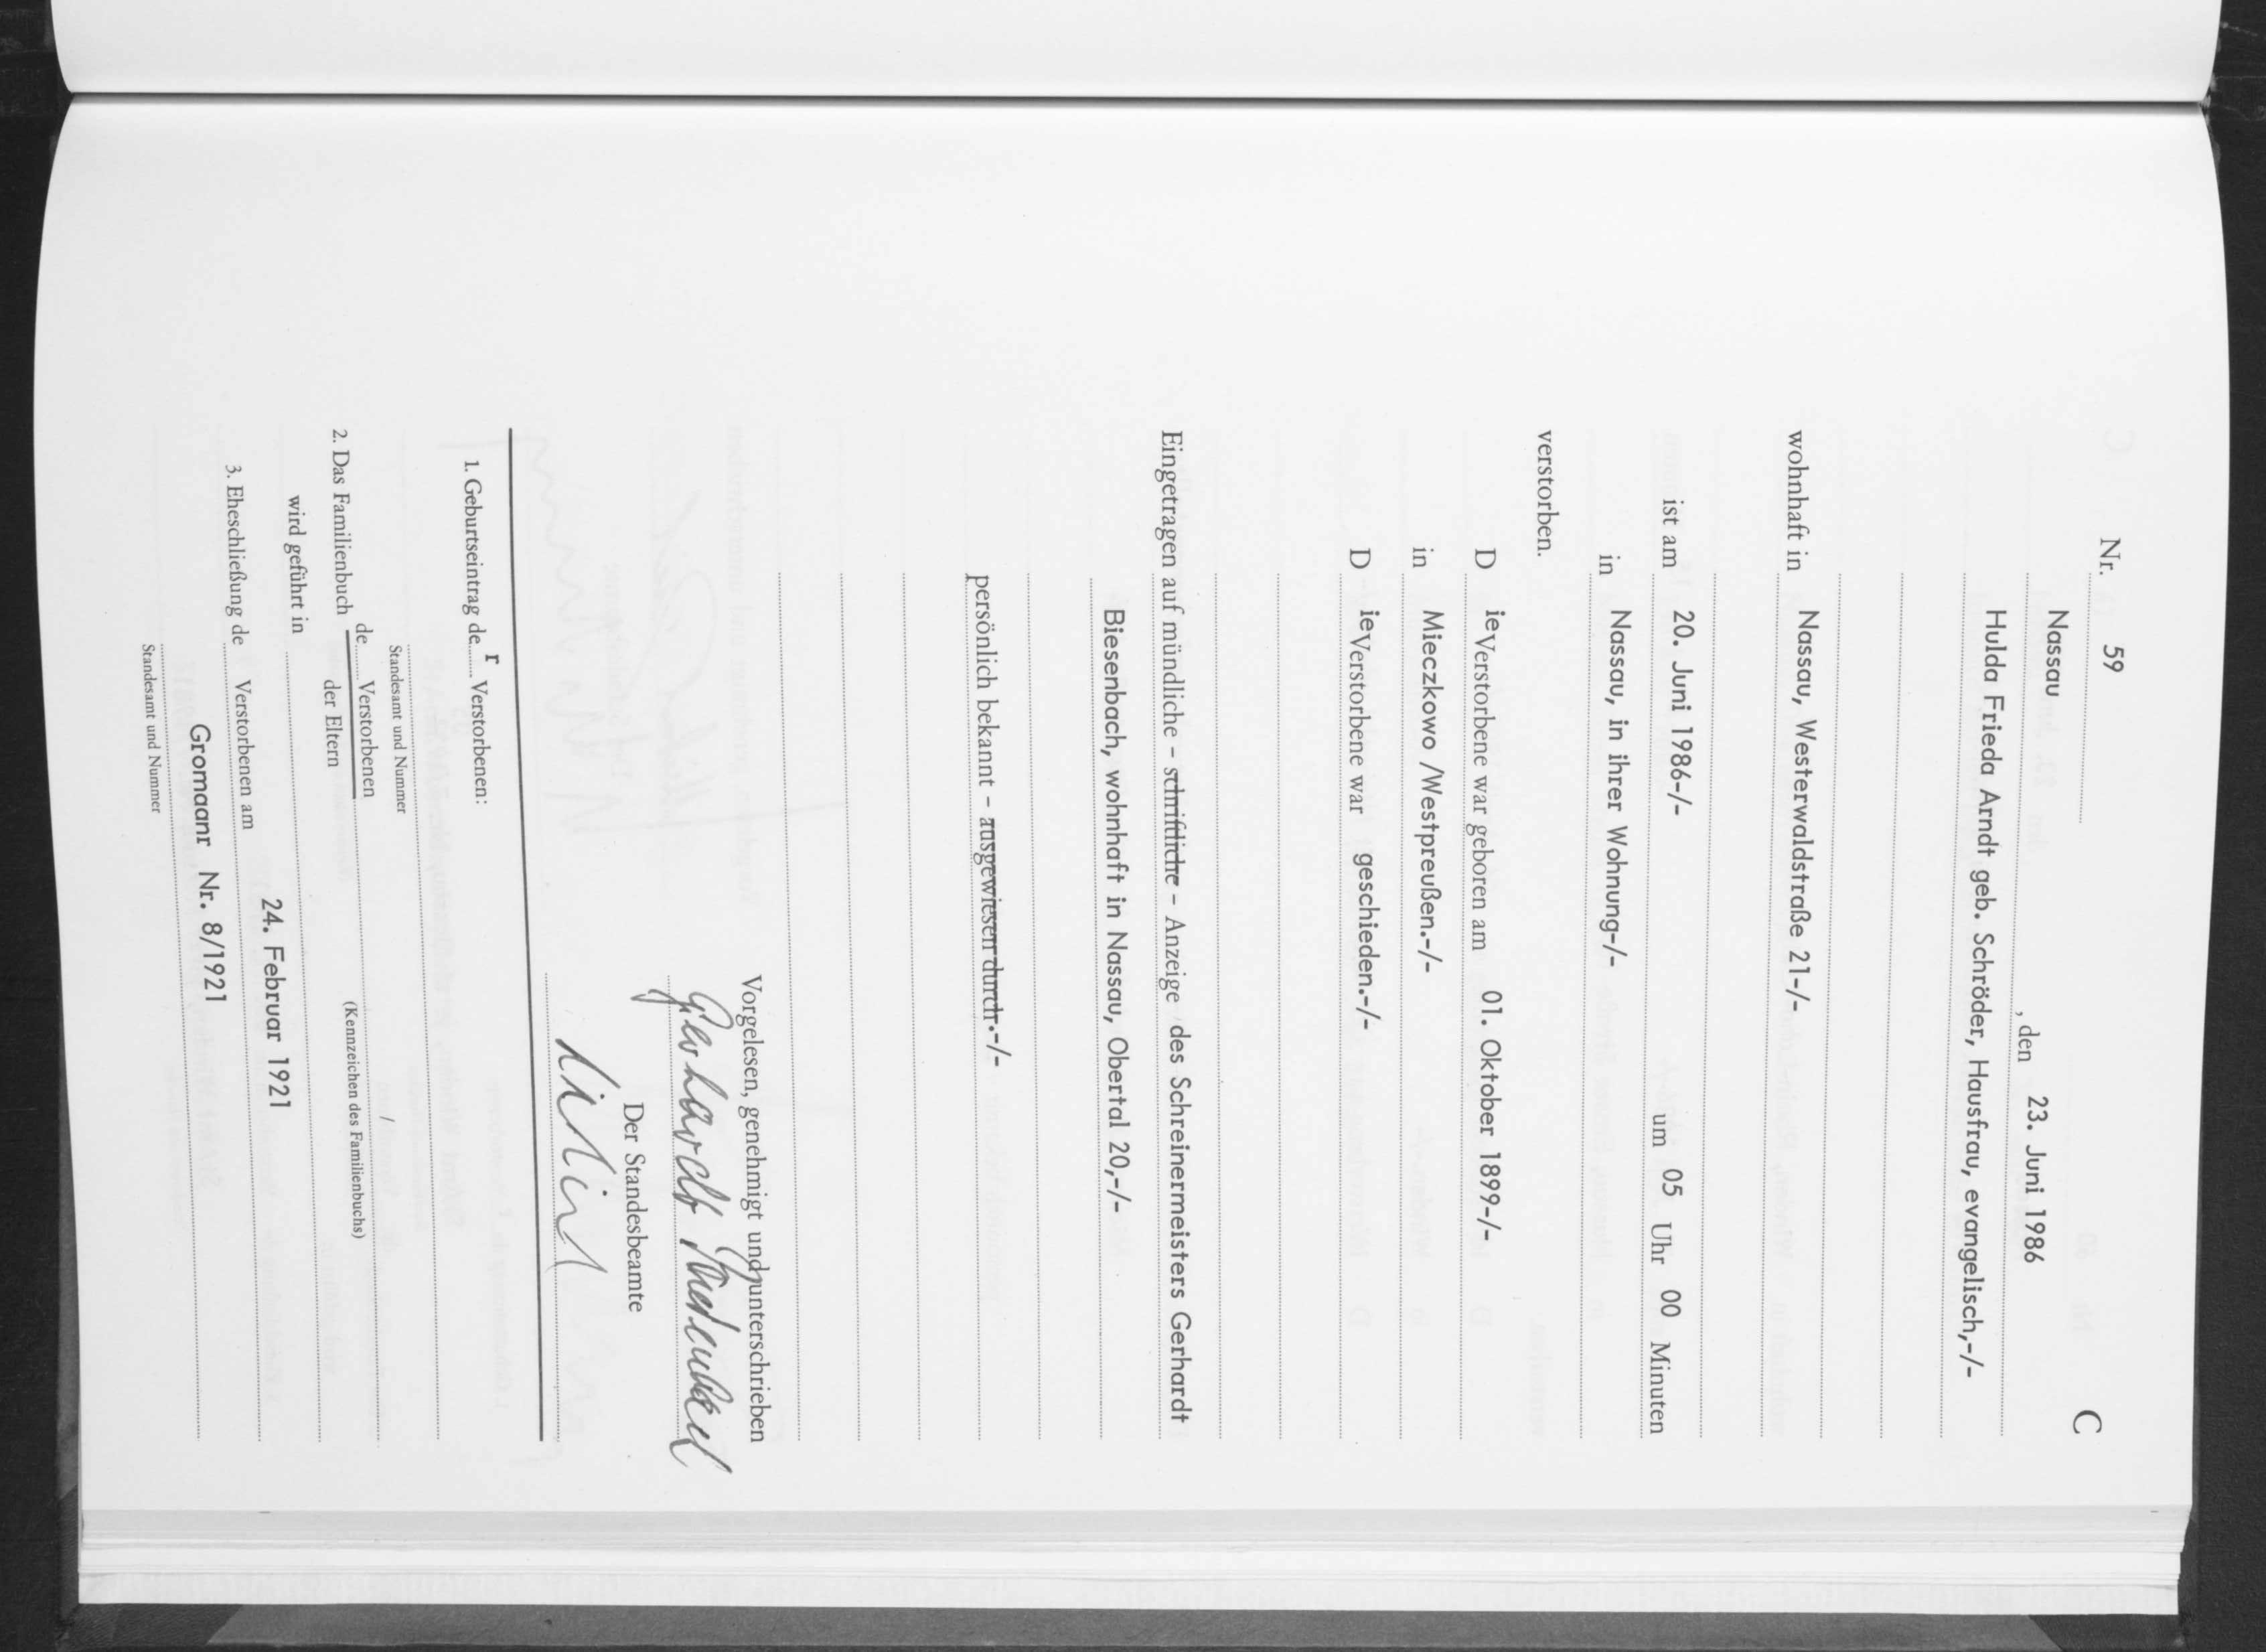 C
Nr. 59
Nassau, den 23. Juni 1986
Hulda Frieda Arndt geb. Schröder, Hausfrau, evangelisch,-/-
wohnhaft in Nassau, Westerwaldstraße 21-/-
ist am 20. Juni 1986-/- um 05 Uhr 00 Minuten
in Nassau, in ihrer Wohnung-/-
verstorben.
D ie Verstorbene war geboren am 01. Oktober 1899-/-
in Mieczkowo /Westpreußen.-/-
D ie Verstorbene war geschieden.-/-
Eingetragen auf mündliche - schriftliche - Anzeige des Schreinermeisters Gerhardt
Biesenbach, wohnhaft in Nassau, Obertal 20,-/-
persönlich bekannt - ausgewiesen durch.-/-
Vorgelesen, genehmigt und unterschrieben
Gerhardt Biesenbach
Der Standesbeamte
1. Geburtseintrag de r Verstorbenen:
Standesamt und Nummer
2. Das Familienbuch de Verstorbenen /
der Eltern (Kennzeichen des Familienbuchs)
wird geführt in
3. Eheschließung de Verstorbenen am 24. Februar 1921
Gromaanr Nr. 8/1921
Standesamt und Nummer